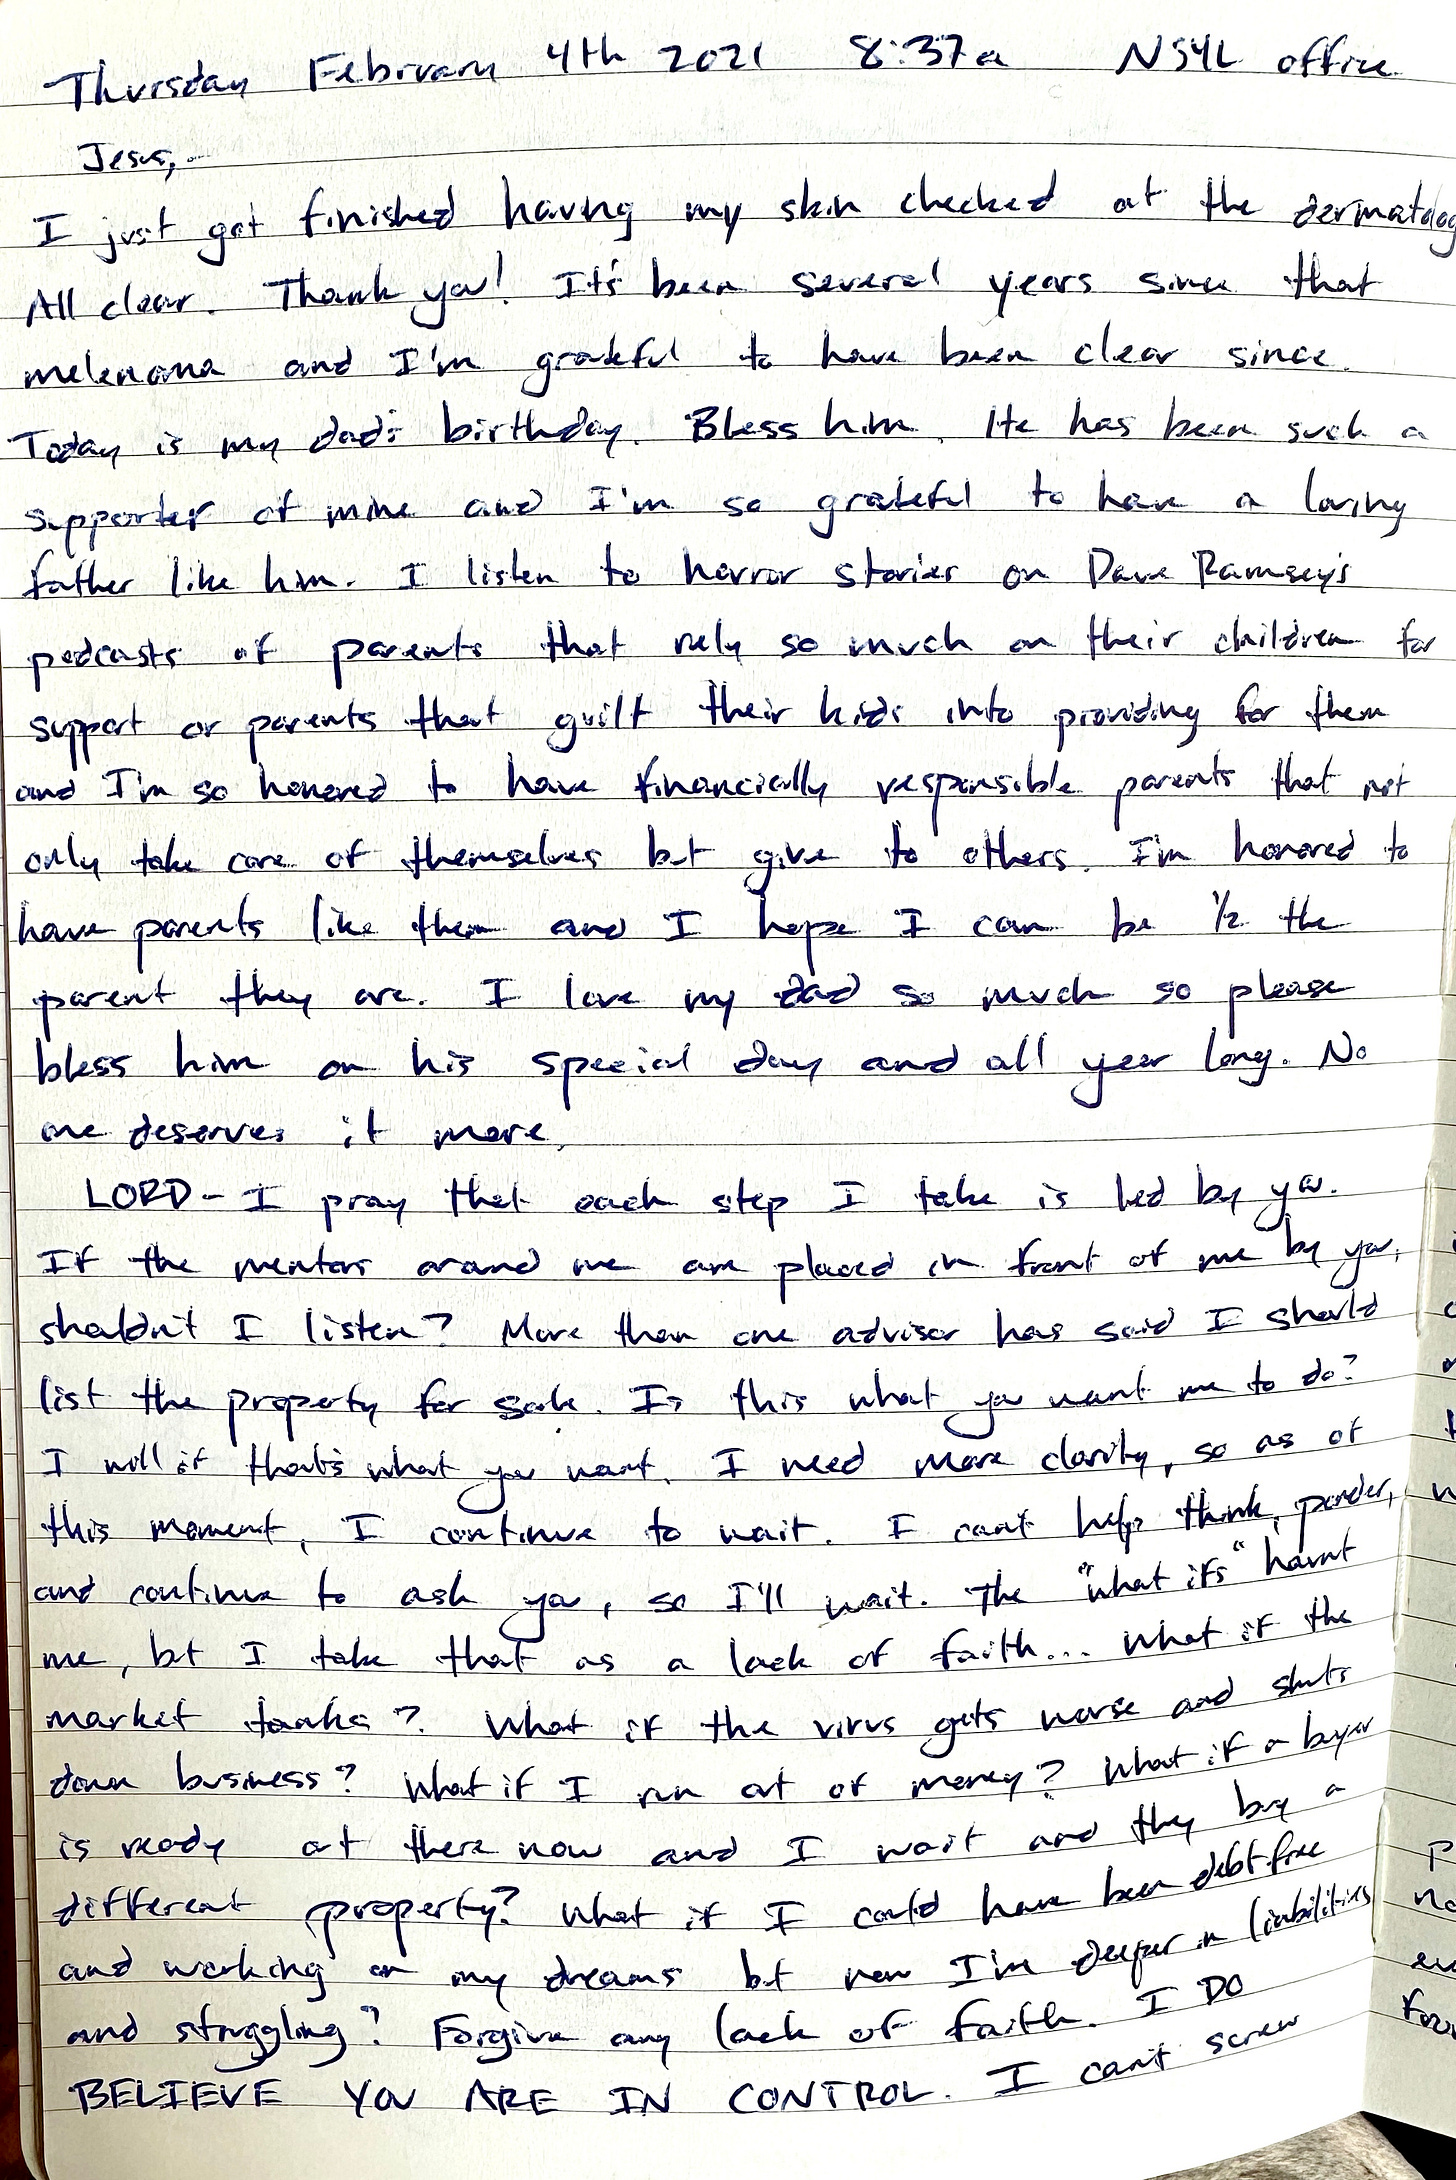 Thursday February 4th 2021 8:37a NSYL office
Jesus,-
I just got finished having my skin checked at the dermatolog
All clear. Thank you! It's been several years since that
melenoma and I'm grateful to have been clear since.
Today is my dad's birthday. Bless him. He has been such a
supporter of mine and I'm so grateful to have a loving
father like him. I listen to horror stories on Dave Ramsey's
podcasts of parents that rely so much on their children for
support or parents that guilt their kids into providing for them
and I'm so honored to have financially responsible parents that not
only take care of themselves but give to others. I'm honored to
have parents like them and I hope I can be 1/2 the
parent they are. I love my dad so much so please
bless him on his special day and all year long. No
one deserves it more.
LORD - I pray that each step I take is led by you.
If the mentors around me are placed in front of me by you,
shouldn't I listen? More than one advisor has said I should
list the property for sale. Is this what you want me to do?
I will if that's what you want. I need more clarity, so as of
this moment, I continue to wait. I can't help think, ponder,
and continue to ask you, so I'll wait. The "what ifs" haunt
me, but I take that as a lack of faith... What if the
market tanks? What if the virus gets worse and shuts
down business? What if I run out of money? What if a buyer
is ready out there now and I wait and they buy a
different property? What if I could have been debt free
and working on my dreams but now I'm deeper in liabilities
and struggling? Forgive any lack of faith. I DO
BELIEVE YOU ARE IN CONTROL. I can't screw